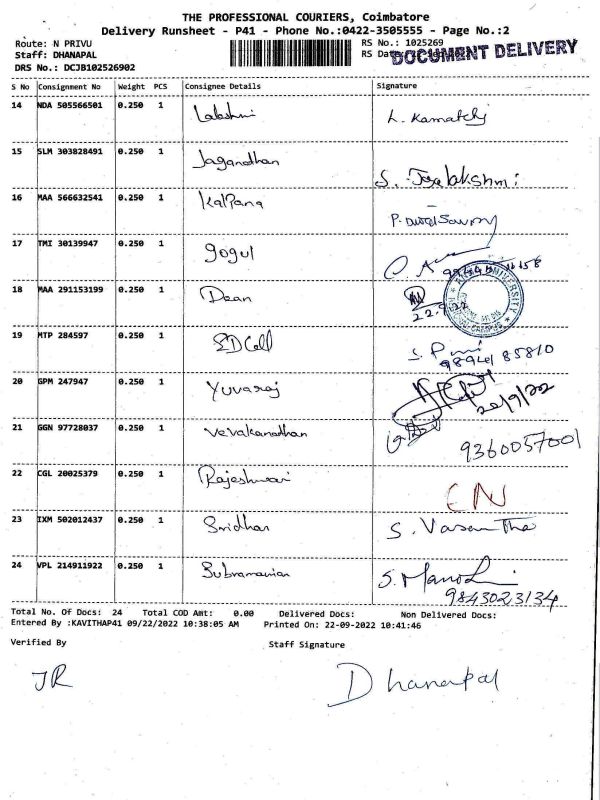 THE PROFESSIONAL COURIERS, Coimbatore
Delivery Runsheet - P41 - Phone No.:0422-3505555 - Page No.:2
Route: N PRIVU RS No.: 1025269
Staff: DHANAPAL RS Date DOCUMENT DELIVERY
DRS No.: DCJB102526902
S No Consignment No Weight PCS Consignee Details Signature
14 NDA 505566501 0.250 1 Lakshmi L. Kamatchi
15 SLM 303828491 0.250 1 Jaganathan S. Jeyalakshmi
16 MAA 566632541 0.250 1 Kalpana
17 TMI 30139947 0.250 1 Gogul
18 MAA 291153199 0.250 1 Dean 22.9.22 UNIVERSITY CAMPUS
19 MTP 284597 0.250 1 SDCell 98941 85810
20 GPM 247947 0.250 1 Yuvaraj 22/9/22
21 GGN 97728037 0.250 1 Vevakanathan 9360057001
22 CGL 20025379 0.250 1 Rajeshwari EN
23 IXM 502012437 0.250 1 Sridhar S. Vasantha
24 VPL 214911922 0.250 1 Subramanian S. Manoj 9843023134
Total No. Of Docs: 24 Total COD Amt: 0.00 Delivered Docs: Non Delivered Docs:
Entered By :KAVITHAP41 09/22/2022 10:38:05 AM Printed On: 22-09-2022 10:41:46
Verified By Staff Signature
JR Dhanapal